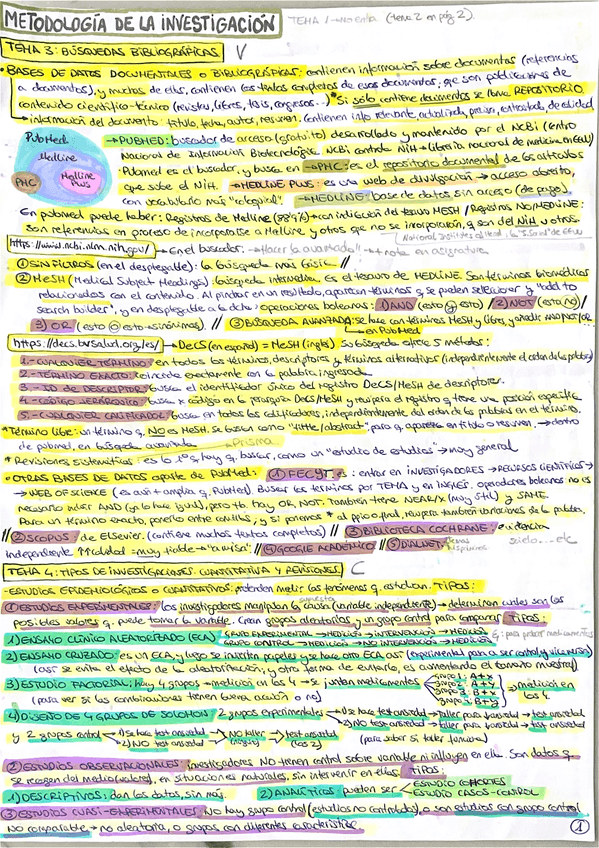 METODOLOGÍA DE LA INVESTIGACIÓN TEMA 1→No entra (tema 2 en pág 2).
TEMA 3: BÚSQUEDAS BIBLIOGRÁFICAS V
•BASES DE DATOS DOCUMENTALES o BIBLIOGRÁFICAS: contienen información sobre documentas (referencias
a documentos), y muchas de ellas, contienen los textos completos de esos documentos, que son publicaciones de
contenido científico-técnico (revistas, libros, tesis, congresos...) *Si solo contiene documentos se llama REPOSITORIO
→información del documento: título, fecha, autor, resumen, contienen info relevante, actualizada, precisa, contrastada, de calidad
PubMed
Medline
PMC
Medline Plus
→PUBMED: buscador de acceso (gratuito) desarrollado y mantenido por el NCBI (Centro
Nacional de Información Biotecnológica. NCBI controla NIH→librería nacional de medicina en EEUU)
Pubmed es el buscador, y busca en →PMC: es el repositorio documental de los artículos
que sube el NIH. →MEDLINE PLUS: es una web de divulgación → acceso abierto,
con vocabulario más "coloquial". →MEDLINE: base de datos sin acceso (de pago).
En pubmed puede haber: Registros de Medline (88%)→con indización del tesauro MESH / Registros NO/MEDLINE:
son referencias en proceso de incorporarse a Medline y otros que no se incorporarán, q son del NIH u otros
https://www.ncbi.nlm.nih.gov/ →En el buscador: →Hacer la avanzada!! →+nota en asignatura
①SIN FILTROS (en el desplegable): la búsqueda más básica //
②MeSH (Medical Subject Headings): búsqueda intermedia. es el tesauro de MEDLINE. Son términos biomédicos
relacionados con el contenido. Al pinchar en un resultado, aparecen términos q se pueden seleccionar y "add to
search builder", y en desplegable a dcha: operaciones boleanas: 1) AND (esto y esto) / 2) NOT (esto no) /
3) OR (esto o esto→sinónimos). // ③BÚSQUEDA AVANZADA: se hace con términos MeSH y libres, y
en PubMed
https://decs.bvsalud.org/es/ →DeCS (en español) = MeSH (inglés). Su búsqueda ofrece 5 métodos:
1.-CUALQUIER TÉRMINO: en todos los términos, descriptores y términos alternativos (independientemente el orden de las palabras)
2.-TÉRMINO EXACTO: coincide exactamente con la palabra ingresada
3.-ID de DESCRIPTOR: busca el identificador único del registro DeCS/MeSH de descriptores.
4.-CÓDIGO JERÁRQUICO: busca x código en la jerarquía DeCS/MeSH y recupera el registro q tiene una posición específica
5.-CUALQUIER CALIFICADOR: busca en todos los calificadores, independientemente del orden de las palabras en el término.
*Término libre: un término q NO es MeSH, se buscan como "tittle/abstract", para q aparezca en título o resumen, →dentro
de pubmed, en búsqueda avanzada →Prisma
*Revisiones sistemáticas: es lo 1º q hay q buscar, como un "estudio de estudios"→muy general
•OTRAS BASES DE DATOS aparte de PubMed: ①FECYT.es: entrar en INVESTIGADORES→RECURSOS CIENTÍFICOS→
→WEB OF SCIENCE (es aun + amplia q PubMed). Buscar los términos por TEMA y en INGLÉS. operadores boleanos no es
necesario meter AND (ya lo hace igual), pero tb. hay OR, NOT. También tiene NEAR/x (muy útil) y SAME.
Para un término exacto, ponerlo entre comillas, y si ponemos * al ppio o final, recupera también variaciones de la palabra.
//②SCOPUS de Elsevier. (contiene muchos textos completos) // ③BIBLIOTECA COCHRANE: evidencia
independiente ↑calidad = muy fiable→"la wisa". //④GOOGLE ACADÉMICO // ⑤DIALNET. temas hispanos scielo...etc
TEMA 4: TIPOS DE INVESTIGACIONES. CUANTITATIVA Y REVISIONES. C
-ESTUDIOS EPIDEMIOLÓGICOS o CUANTITATIVOS: pretenden medir los fenómenos q estudian. TIPOS:
①ESTUDIOS EXPERIMENTALES: los investigadores manipulan la supuesta causa (variable independiente)→determinan cuáles son los
posibles valores q puede tomar la variable. Crean grupos aleatorios y un grupo control para comparar TIPOS:
1)ENSAYO CLÍNICO ALEATORIZADO (ECA) GRUPO EXPERIMENTAL→MEDICIÓN→INTERVENCIÓN→MEDICIÓN
GRUPO CONTROL→MEDICIÓN→NO INTERVENCIÓN→MEDICIÓN Ej: para probar medicamentos
2)ENSAYO CRUZADO: es un ECA y luego se invierten papeles y se hace otro ECA así (experimental pasa a ser control y viceversa)
(así se evita el efecto de la aleatorización, y otra forma de evitarlo, es aumentando el tamaño muestral)
3)ESTUDIO FACTORIAL: hay 4 grupos→medición en los 4→se juntan medicamentos grupo 1: A+Y
grupo 2: A+X →medición en
(para ver si las combinaciones tienen buena acción o no) grupo 3: B+X los 4.
grupo 4: B+Y
4)DISEÑO DE 4 GRUPOS DE SOLOMON: 2 grupos experimentales →1)Se hace test ansiedad→taller para ansiedad→test ansiedad
→2)NO test ansiedad→taller para ansiedad→test ansiedad
y 2 grupos control →1)Se hace test ansiedad →NO taller→test ansiedad (para saber si taller funciona)
→2)NO test ansiedad (ninguno) (los 2)
②ESTUDIOS OBSERVACIONALES: investigadores NO tienen control sobre variable ni influyen en ella. Son datos q
se recogen del medio (valores), en situaciones naturales, sin intervenir en ellas. TIPOS:
1)DESCRIPTIVOS: dan los datos, sin más. 2)ANALÍTICOS: pueden ser ESTUDIO COHORTES
ESTUDIO CASOS-CONTROL
③ESTUDIOS CUASI-EXPERIMENTALES: No hay grupo control (estudios no controlados), o son estudios con grupo control
no comparable→no aleatoria, o grupos con diferentes características.
①